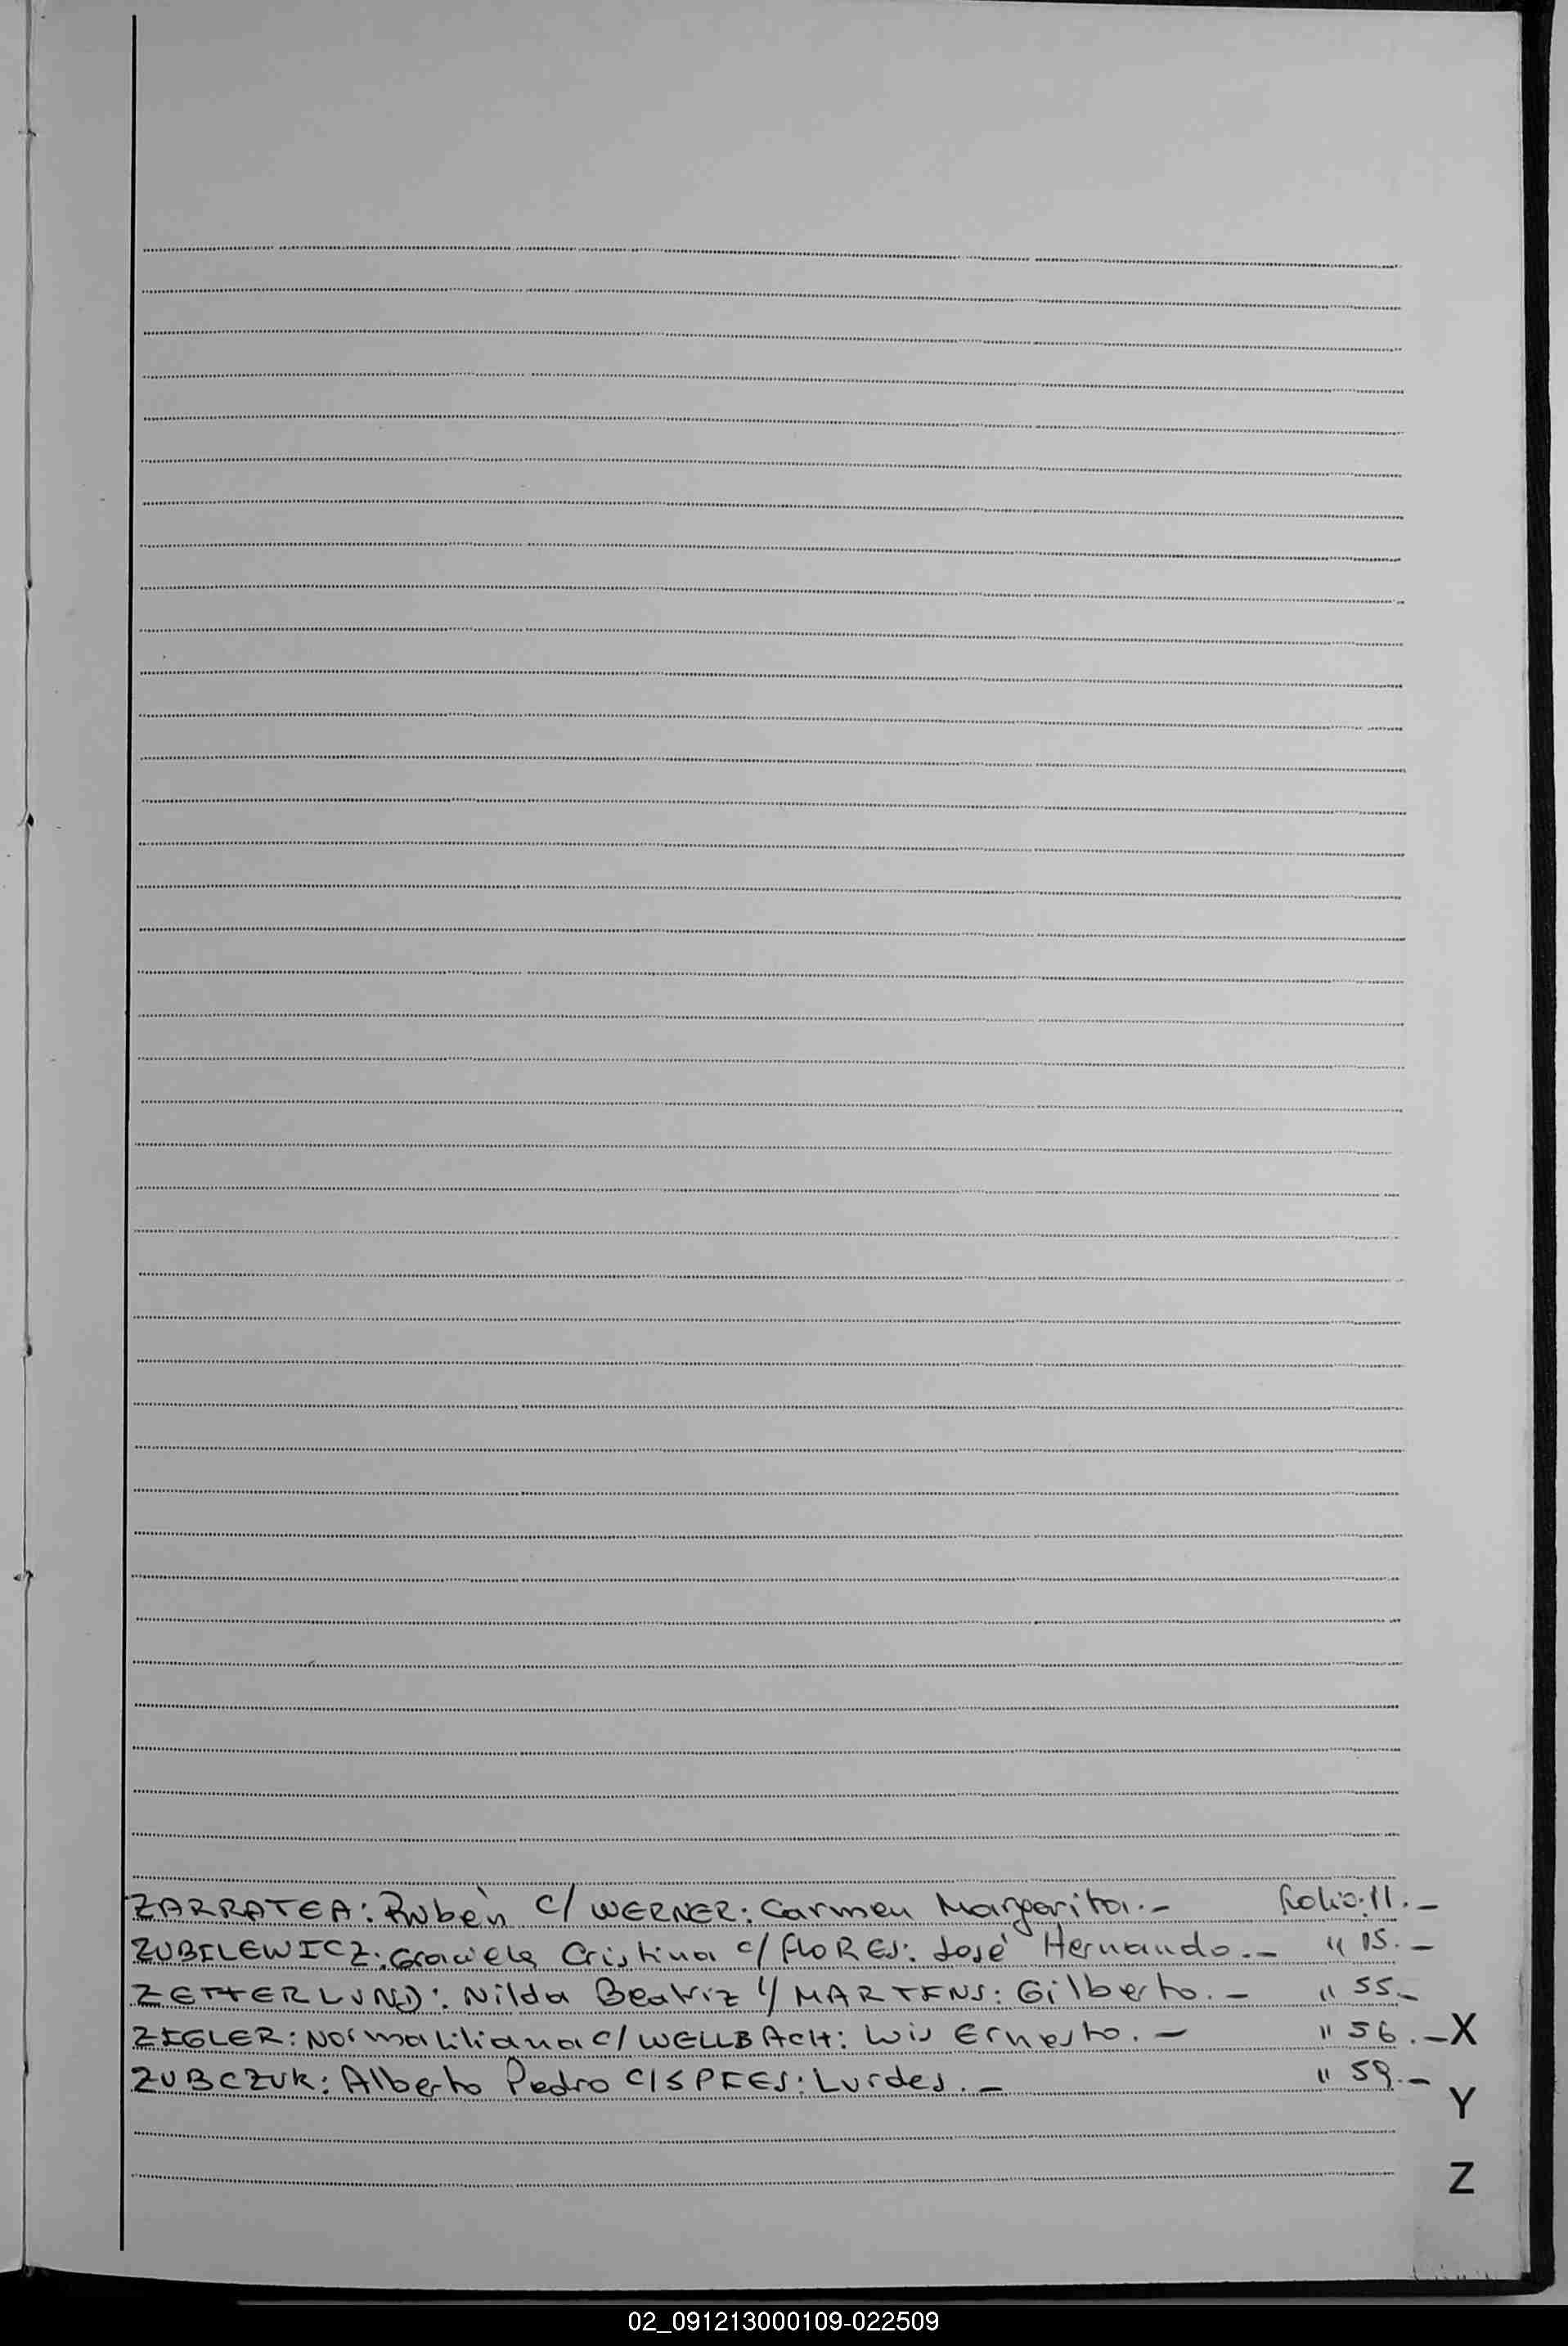 ZARRATEA: Rubèn c/ WERNER: Carmen Margarita.- Folio: 11.-
ZUBILEWICZ: Graciela Cristina c/ FLORES: José Hernando.- " 15.-
ZETTERLUND: Nilda Beatriz c/ MARTENS: Gilberto.- " 55.-
ZIGLER: Norma Liliana c/ WELLBACH: Luis Ernesto.- " 56.-
X
ZUBCZUK: Alberto Pedro c/ SPIES: Lurdes.- " 59.-
Y
Z
02_091213000109-022509